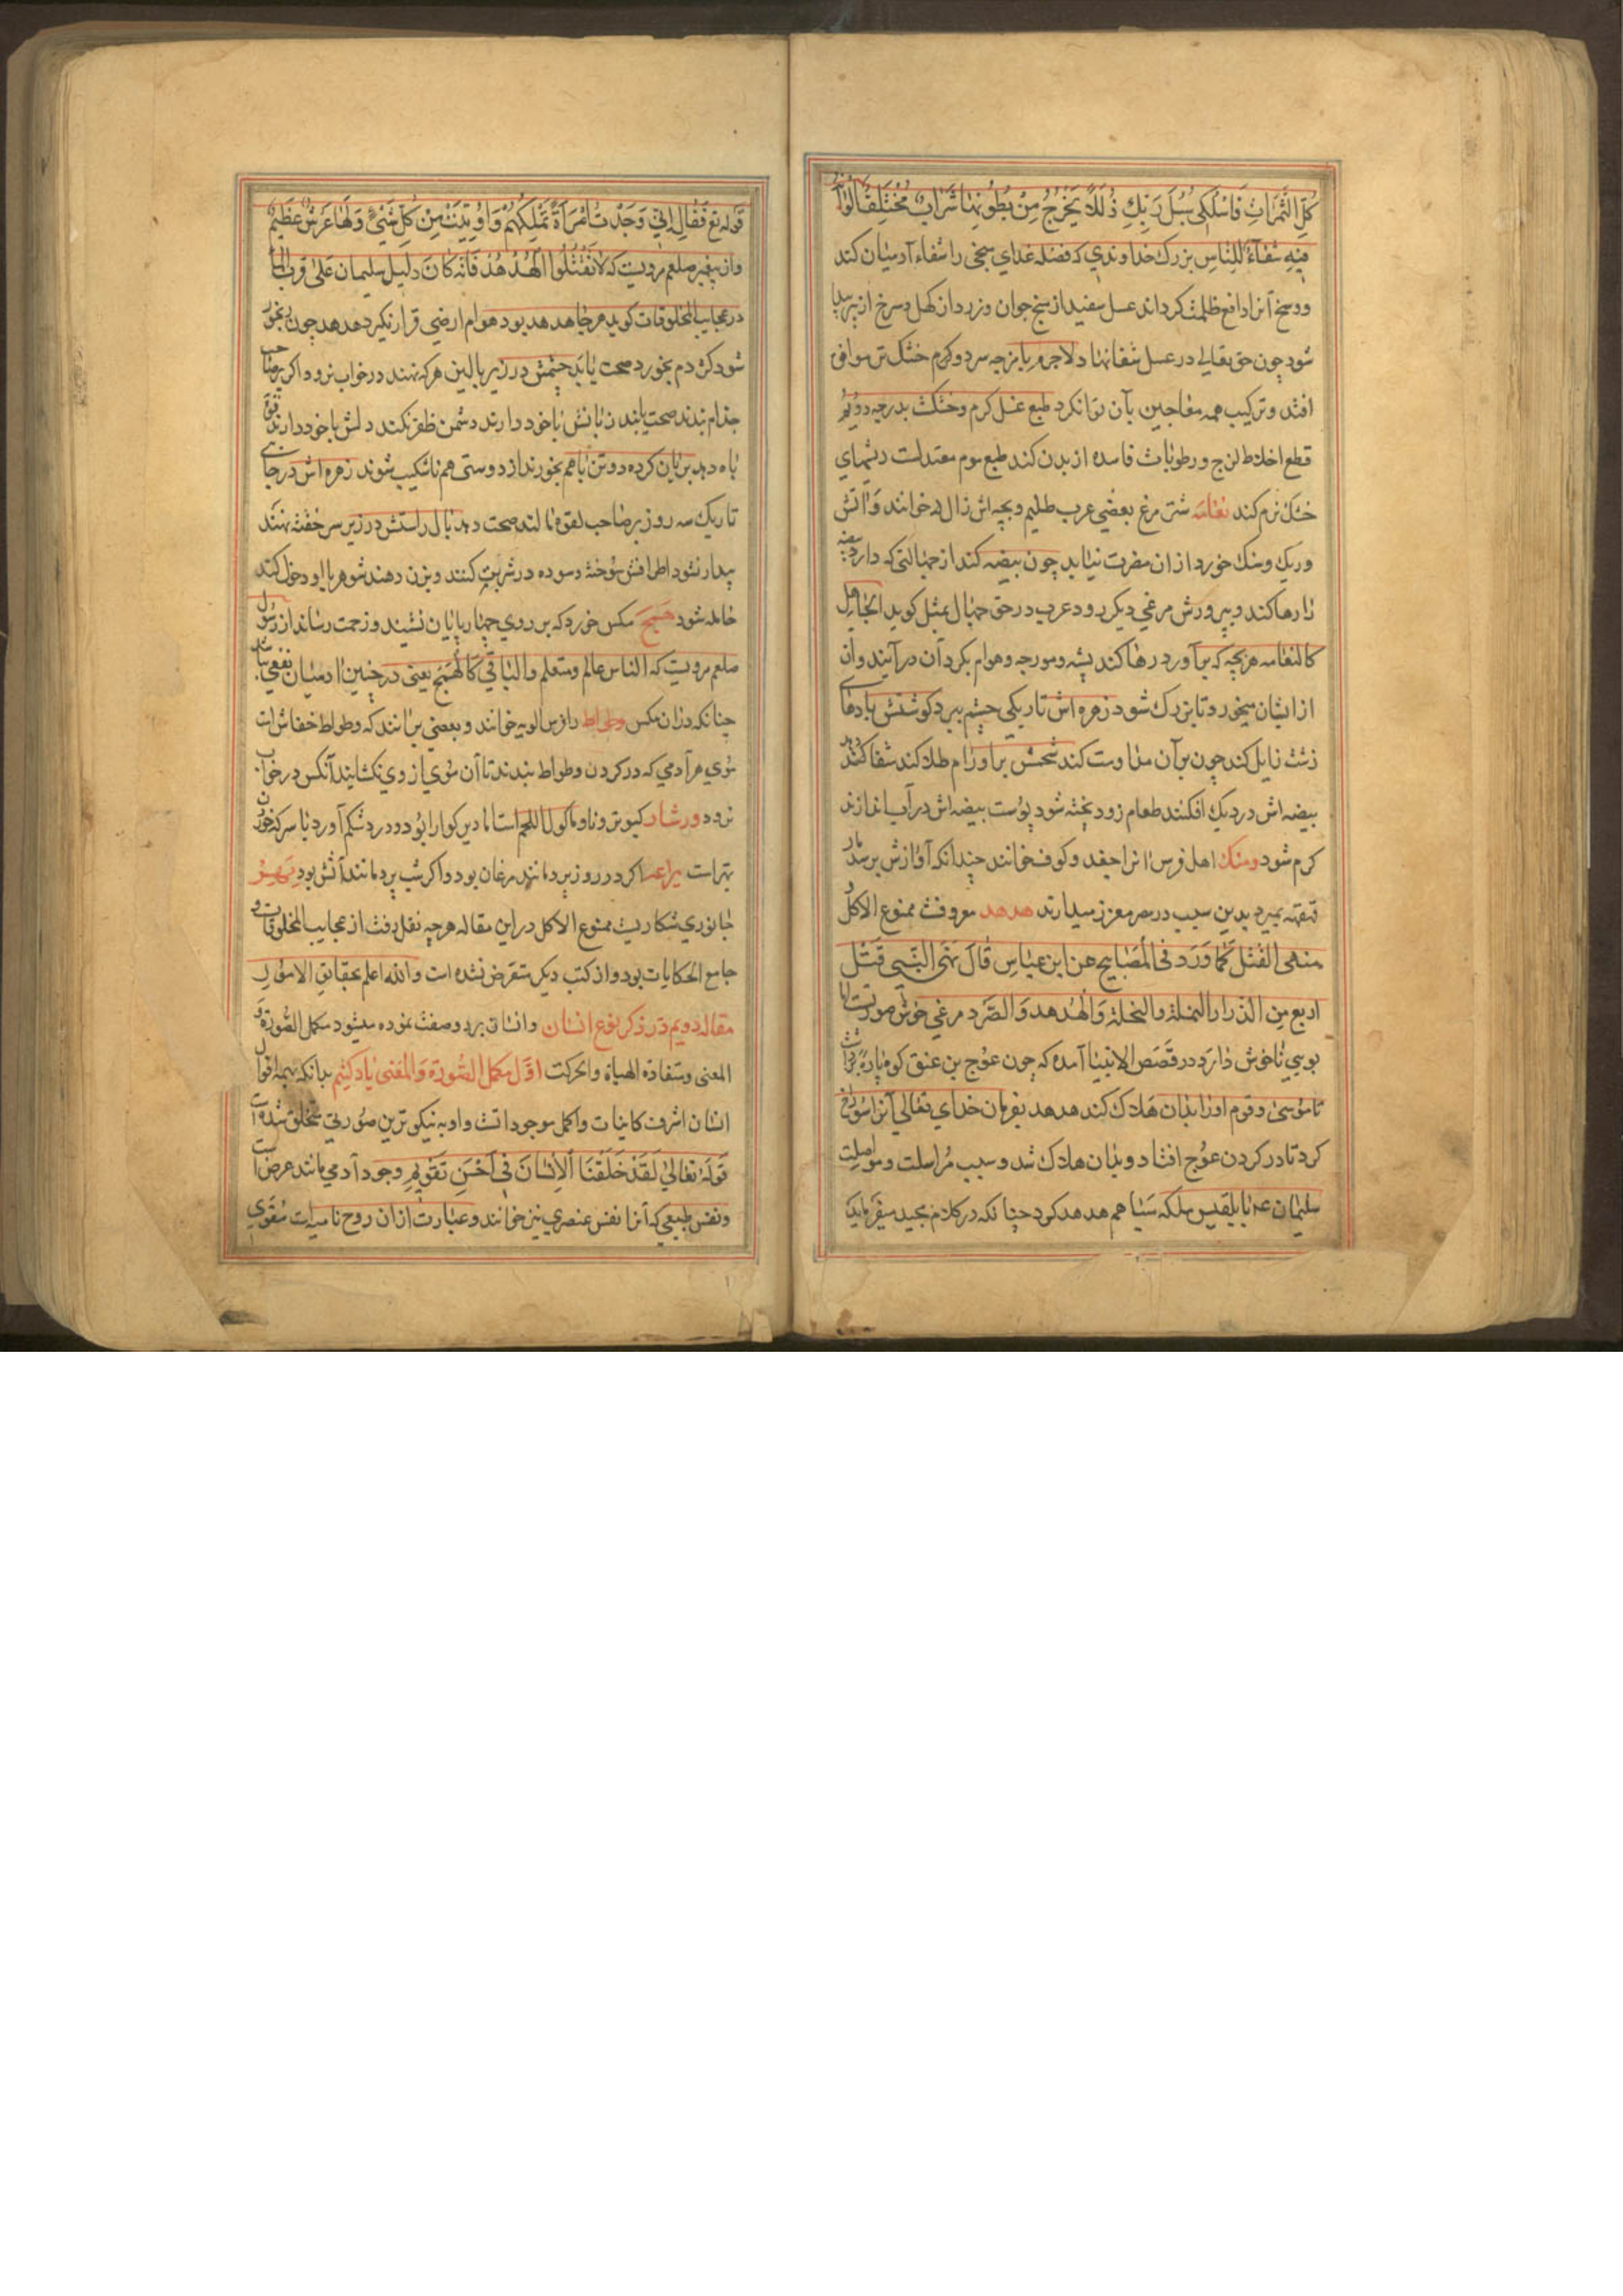 كُلِّ الثَّمَرَاتِ فَاسْلُكِی سُبُلَ رَبِّكِ ذُلُلًا يَخْرُجُ مِنْ بُطُونِهَا شَرَابٌ مُخْتَلِفٌ أَلْوَانُهُ
فِيهِ شِفَآءٌ لِلنَّاسِ بزرك خداوندي كه فضله غداي را شفاء آدميان كند
و وسخ آنرا دافع ظلمت كرداند عسل سفيد از نج جوان و زرد از كهل و سرخ از پير پيدا
شود چون حق تعالی در عسل شفا نهاد لاجرم با مزجه سرد و كرم خشك تر موافق
افتد و تركيب همه معاجين بآن توان كرد طبع عسل كرم و خشكست بدرجه دويم
قطع اخلاط لزج و رطوبات فاسده از بدن كند طبع موم معتدلست ريشهای
خشك نرم كند نعامه شتر مرغ بعضي عرب ظليم و بچه اش را رال خوانند و آتش
و ريك و سنك خورد از ان مضرت نيابد چون بيضه كند از جهالتی كه دارد بيضه
را رها كند و بپرورش مرغي ديكر رود عرب در حق جهال بمثل كويد الجاهل
كالنعامه هر بچه كه برآورد رها كند پشه و مورچه و هوام بكرد آن درآيند و آن
از ايشان ميخورد تا بزرك شود زهره اش تاريكي چشم ببرد كوشتش بادهای
زشت زايل كند چون بر آن مداومت كند شحمش بر اورام طلا كند شفا دهد
بيضه اش در ديك افكنند طعام زود پخته شود پوست بيضه اش در آب اندازند
كرم شود ومنك اهل فرس انرا جغد و كوف خوانند چندانكه آوازش برسد مار
بميرد بدين سبب در مصر معزز ميدارند هدهد معروفست ممنوع الاكل
منهی القتل كَمَا وَرَدَ فی الْمَصَابيح عن ابن عباس قَالَ نَهَی النَّبِی قَتْل
اربع مِن الدواب النملة والنحلة وَالْهُدهد وَالصُّرَد مرغي خوش صورتست اما
بويي ناخوش دارد در قَصَص الانبيا آمده كه چون عوج بن عنق كوه پاره برداشت
تا موسیٰ و قوم او را بدان هلاك كند هدهد بفرمان خدای تعالی آنرا سوراخ
كرد تا در كردن عوج افتاد و بدان هلاك شد و سبب مراسلت و مواصلت
سليمان عم با بلقيس ملكه سبا هم هدهد كرد چنانكه در كلام مجيد ميفرمايد
قوله تع فَقَالَ إِنِّي وَجَدْتُ امْرَأَةً تَمْلِكُهُمْ وَأُوتِيَتْ مِنْ كُلِّ شَيْءٍ وَلَهَا عَرْشٌ عَظِيمٌ
و از پيغمبر صلعم مرويست كه لَا تَقْتُلُوا الْهُدْهُدَ فَاِنَّه كَانَ دليل سليمان عَلیٰ قرب الماء
در عجايب المخلوقات كويد هر جا هدهد بود هوام ارضي قرار نكيرد هدهد چون رنجور
شود كژدم بخورد صحت يابد چشمش در زير بالين هر كه نهند در خواب نرود و اكر بر صاحب
جذام بندند صحت يابد زبانش با خود دارند دشمن ظفر نكند دلش با خود دارند قوّة
باه دهد بريان كرده دو تن با هم بخورند از دوستی هم ناشكيب شوند زهره اش در جای
تاريك سه روز بر صاحب لقوه مالند صحت دهد بال راستش در زير سر خفته نهند
بيدار نشود اطرافش سوخته و سوده در شربت كنند و بزن دهند شوهر با او دخول كند
حامله شود همج مكس خورد كه بر روي چهارپايان نشيند و زحمت رساند از رسول
صلعم مرويست كه الناس عالم و متعلم والباقي كَالْهَمَج يعنی در چنين آدميان نفعي نباشد
چنانكه در ان مكس وطواط را فرس الويه خوانند و بعضي بر آنند كه وطواط خفاش است
موي هر آدمي كه در كردن وطواط بندند تا آن موي از وي نكشايند آنكس در خواب
نرود ورشان كبوتر و ماكول اللحم است اما دير كوارا بود و درد شكم آورد با سركه خوردن
بهتراست يراعه اكر در روز پرد مانند مرغان بود و اكر شب پرد مانند آتش بود
جانوري شكاريست ممنوع الاكل در اين مقاله هر چه نقل رفت از عجايب المخلوقات و
جامع الحكايات بود و از كتب ديكر متعرض نشده است والله اعلم بحقايق الامور
مقاله دويم در ذكر نوع انسان و انسان بر دو صفت نموده ميشود مكمل الصورة و
المعنی و مستفادة الهياة والحركت اوّل مكمل الصورة والمعنی ياد كنيم بدانكه بهمه اقوال
انسان اشرف كاينات و اكمل موجوداتست و او به نيكوترين صورتي مخلوق شده است
قوله تعالیٰ لَقَدْ خَلَقْنَا الْاِنْسَانَ فِي اَحْسَنِ تَقْوِيم وجود آدمي مانند عرض است
و نفس طبيعي كه آنرا نفس عنصري نيز خوانند و عبارت از ان روح ناميه است مقوي